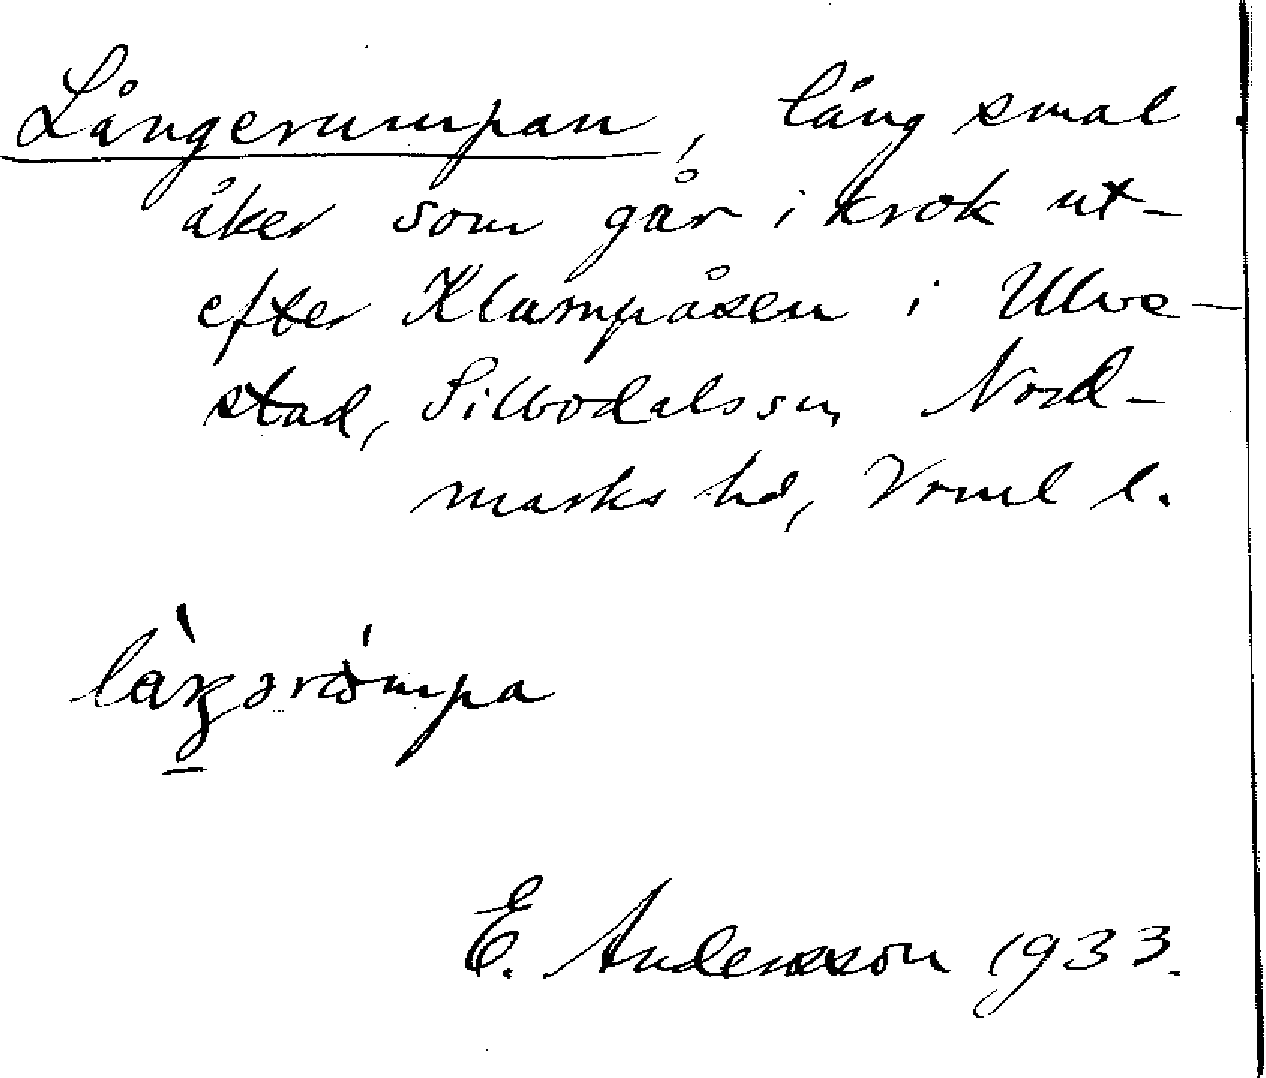 Långerumpan, lång smal
åker som går i krok ut-
efter Klampåsen i Ulve-
stad, Silbodalssn, Nord-
marks hd, Vrml l.
E. Andersson 1933.